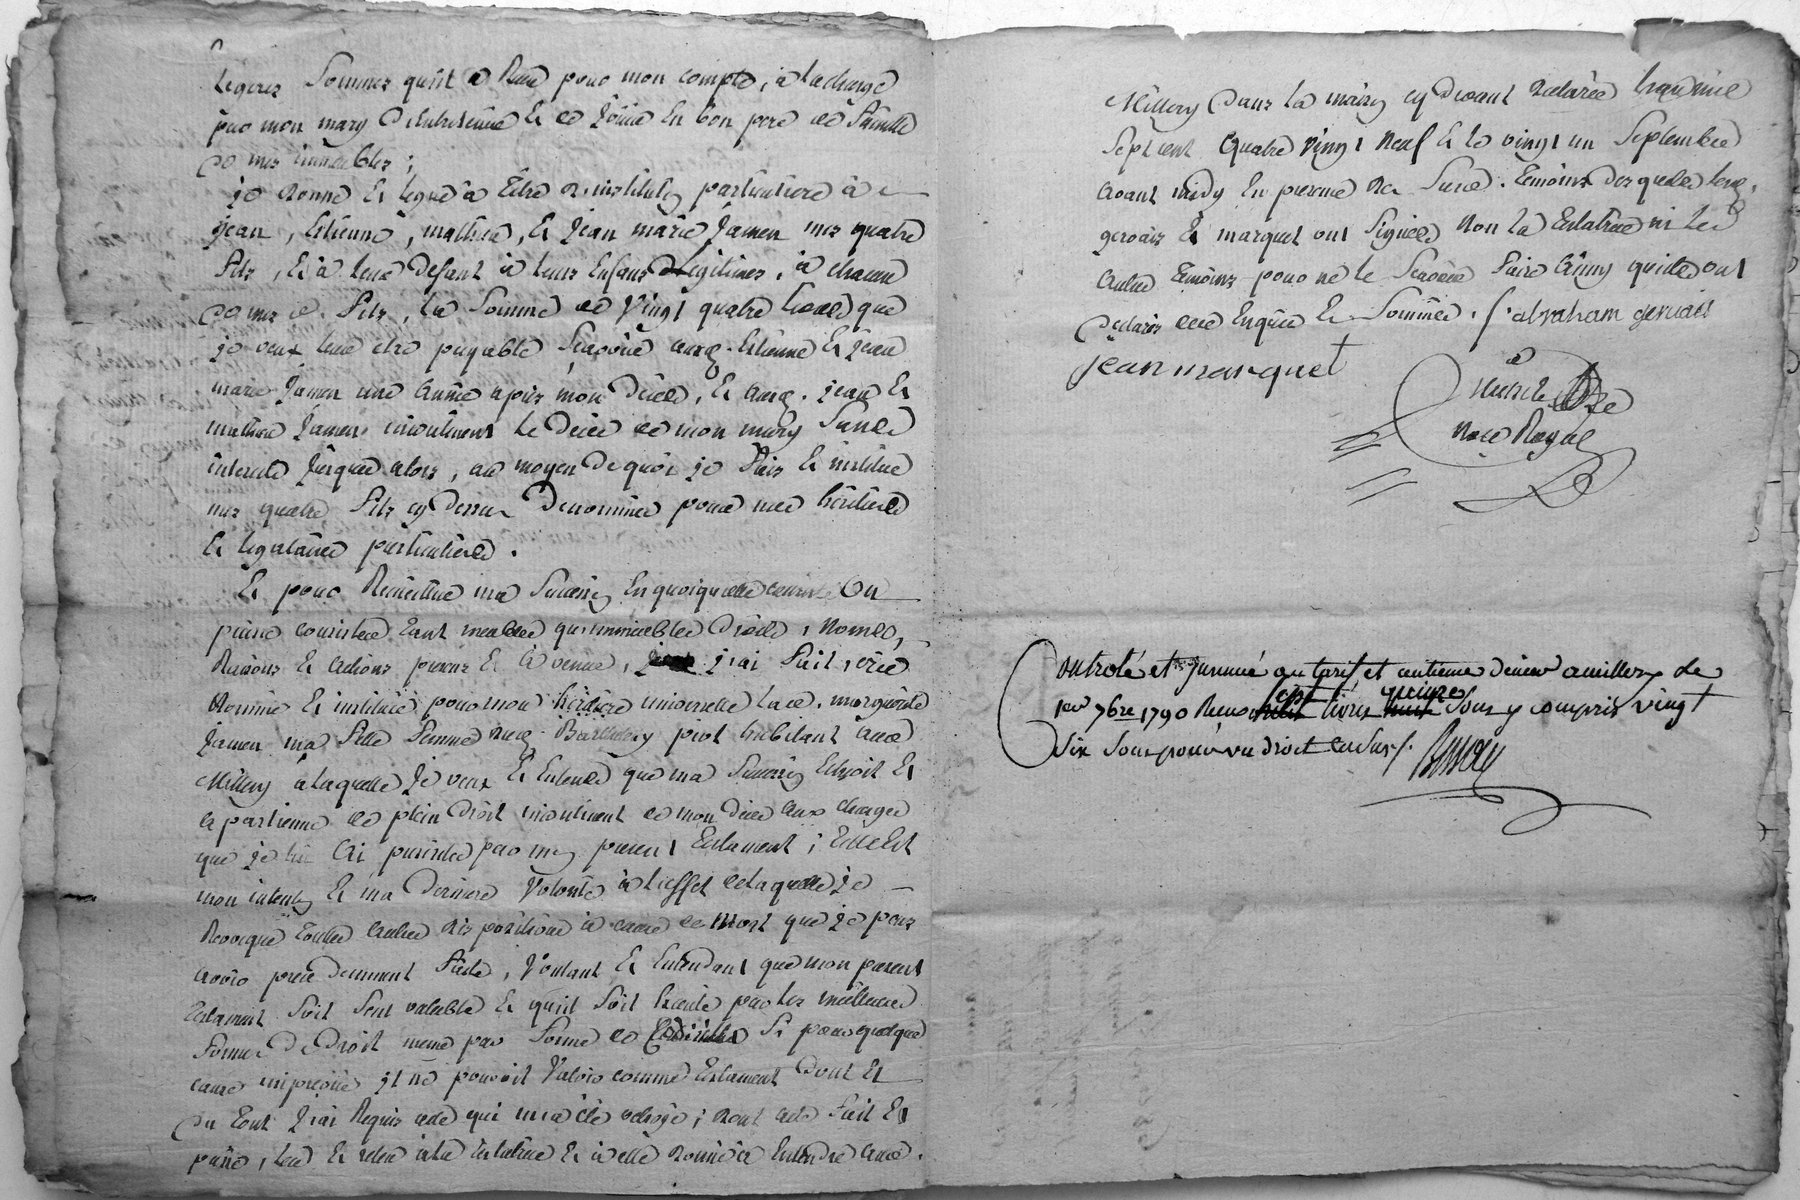 legeres Sommes qu'il a Reçu pour mon compte, a la charge
par mon mary d'Entretenir Et de Jouir En bon pere de famille
de mes immeubles;
je donne Et legue a titre d'institut.on particuliere à
jean, Etienne, mathieu, Et Jean marie Jamen mes quatre
fils, Et à leur defaut à leurs Enfans Legitimes, à chacun
de mes d. fils, la Somme de Vingt quatre livres que
je veux leur etre payable Sçavoir aux d. Etienne Et Jean
marie Jamen une année après mon décès, Et aux d. jean Et
mathieu Jamen incontinent le décès de mon mary Sans
interets Jusques alors, au moyen de quoi je fais Et institue
mes quatre fils cy dessus denommés pour mes heritiers
Et legataires particuliers.
Et pour Recueillir ma Succession En quoiqu'elle consiste Ou
puisse consister tant meubles qu'immeubles droits, Noms,
Raisons Et actions presens Et à venir, j'ai fait, créé
Nommé Et institué pour mon héritiere universelle la d. marguerite
Jamen ma fille femme du d. Barthelemy piot habitant aud.
Millery à laquelle Je veux Et Entends que ma Succession Echoit Et
apartienne de plein droit incontinent de mon décès aux charges
que je lui ai prescrites par mon present testament; telle Est
mon intention Et ma derniere Volonté à l'effet de laquelle je
Revoque toutes autres dispositions à cause de mort que je peux
avoir precedemment faite, Voulant Et Entendant que mon present
testament Soit Seul valable Et qu'il Soit Executé par les meilleures
formes de Droit meme par forme de Codicille Si pour quelque
cause imprevue il ne pouvoit Valoir comme testament dont Et
du tout J'ai Requis acte qui m'a été octroyé; dont acte fait Et
passé, leu Et releu à la testatrice Et à elle donné à Entendre aud.
Millery dans la maison cy devant declarée l'an mil
Sept cent quatre vingt neuf Et le vingt un Septembre
avant midy En presence des Susd. témoins desquels les d.
gervais Et marquet ont Signés Non la testatrice ni les
autres témoins pour ne le Sçavoir faire Ainsy qu'ils ont
declaré de ce Enquis Et Sommés. f. abraham gervais
jean marquet
Nore Royal
Controlé et insinué au tarif et centieme denier a millery le
1er 7bre 1790 Reçu sept livres quinze Sous y compris vingt
Six Sous pour un droit en sus.